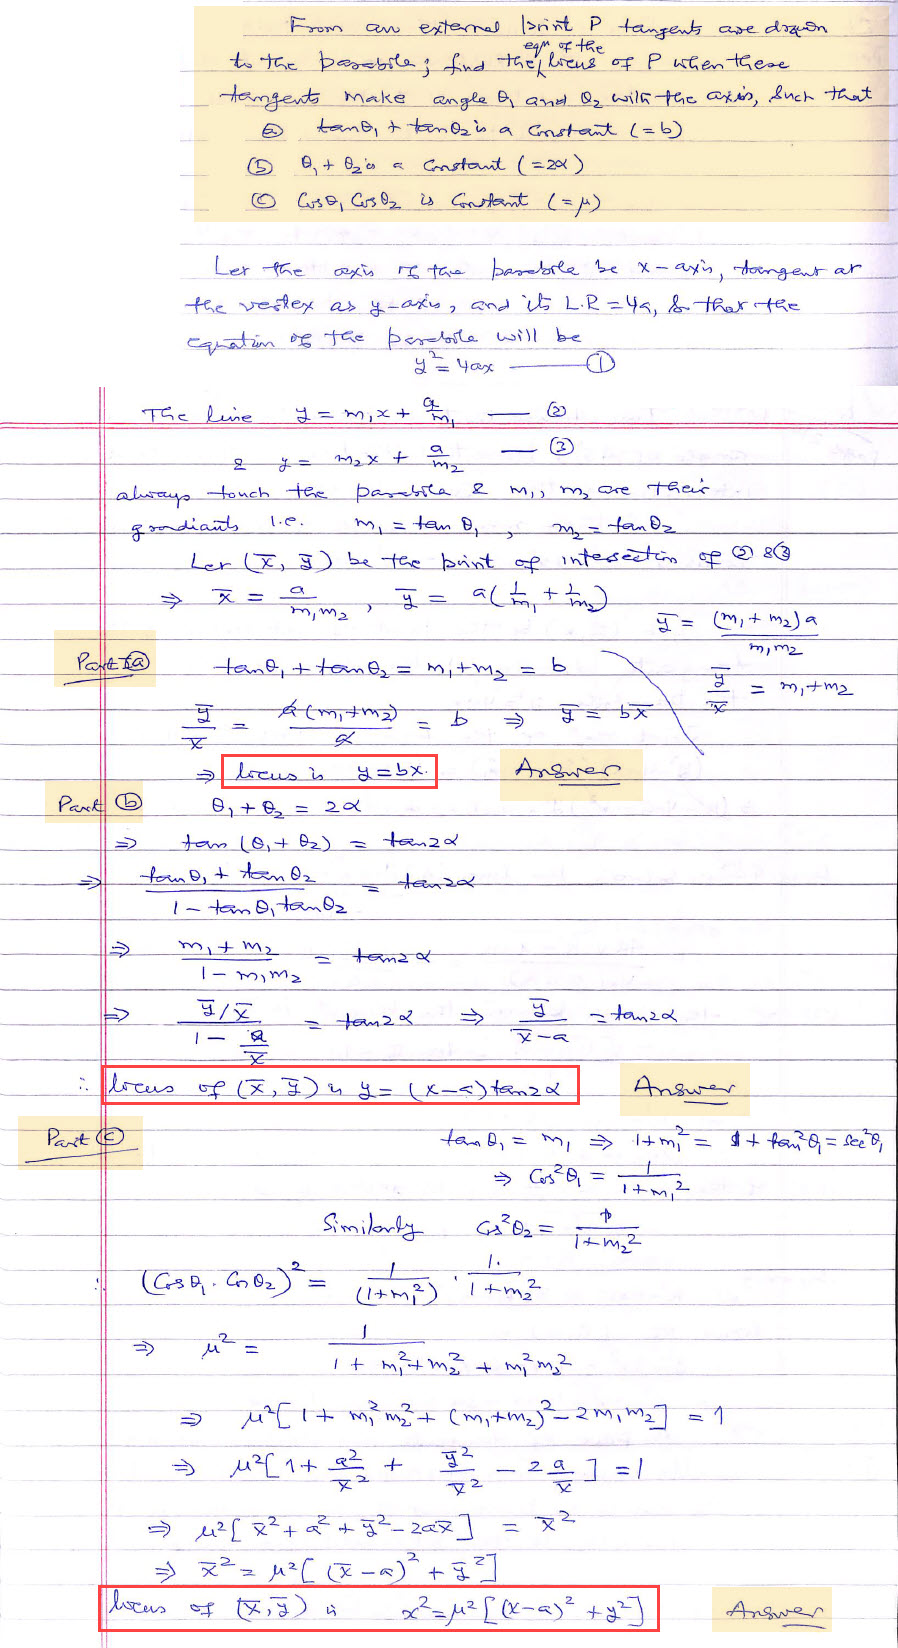 From an external point P tangents are drawn
to the parabola; find the eqn of the locus of P when these
tangents make angle θ₁ and θ₂ with the axis, such that
ⓐ tanθ₁ + tanθ₂ is a constant (=b)
ⓑ θ₁ + θ₂ is a constant (=2α)
ⓒ Cosθ₁ Cosθ₂ is constant (=μ)
Let the axis of the parabola be x-axis, tangent at
the vertex as y-axis, and its L.R = 4a, so that the
equation of the parabola will be
y² = 4ax —— ①
The line y = m₁x + a/m₁ — ②
& y = m₂x + a/m₂ — ③
always touch the parabola & m₁, m₂ are their
gradiants i.e. m₁ = tan θ₁ , m₂ = tanθ₂
Let (x̅, y̅) be the point of intersection of ② & ③
⇒ x̅ = a/(m₁m₂) , y̅ = a(1/m₁ + 1/m₂)
y̅ = (m₁ + m₂)a/(m₁m₂)
y̅/x̅ = m₁+m₂
Part ⓐ tanθ₁ + tanθ₂ = m₁+m₂ = b
y̅/x̅ = a(m₁+m₂)/a = b ⇒ y̅ = bx̅
⇒ locus is y=bx. Answer
Part ⓑ θ₁ + θ₂ = 2α
⇒ tan (θ₁ + θ₂) = tan2α
⇒ (tanθ₁ + tanθ₂)/(1 - tanθ₁tanθ₂) = tan2α
⇒ (m₁ + m₂)/(1 - m₁m₂) = tan2α
⇒ (y̅/x̅)/(1 - a/x̅) = tan2α ⇒ y̅/(x̅-a) = tan2α
∴ locus of (x̅, y̅) is y = (x-a)tan2α Answer
Part ⓒ tanθ₁ = m₁ ⇒ 1+m₁² = 1 + tan²θ₁ = sec²θ₁
⇒ Cos²θ₁ = 1/(1+m₁²)
Similarly Cos²θ₂ = 1/(1+m₂²)
∴ (Cosθ₁. Cosθ₂)² = 1/(1+m₁²) . 1/(1+m₂²)
⇒ μ² = 1/(1 + m₁²+m₂² + m₁²m₂²)
⇒ μ²[1 + m₁²m₂² + (m₁+m₂)² - 2m₁m₂] = 1
⇒ μ²[1 + a²/x̅² + y̅²/x̅² - 2a/x̅] = 1
⇒ μ²[x̅² + a² + y̅² - 2ax̅] = x̅²
⇒ x̅² = μ²[(x̅-a)² + y̅²]
locus of (x̅, y̅) is x² = μ²[(x-a)² + y²] Answer